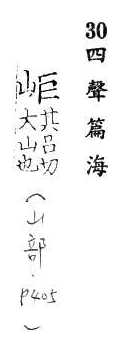 30四聲篇海
岠其呂切大山也(山部.P405)